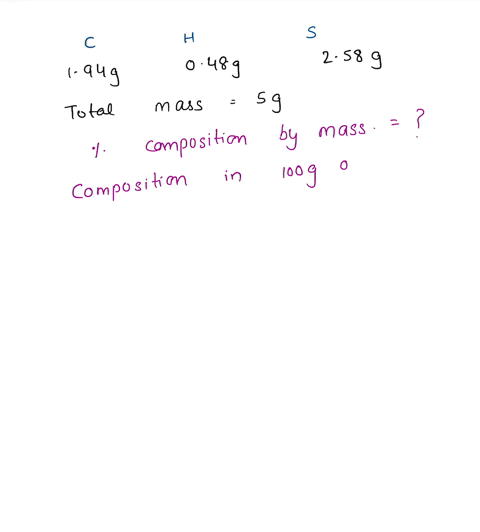 C H S
1.94g 0.48g 2.58 g
Total mass = 5g
% composition by mass. = ?
Composition in 100g o